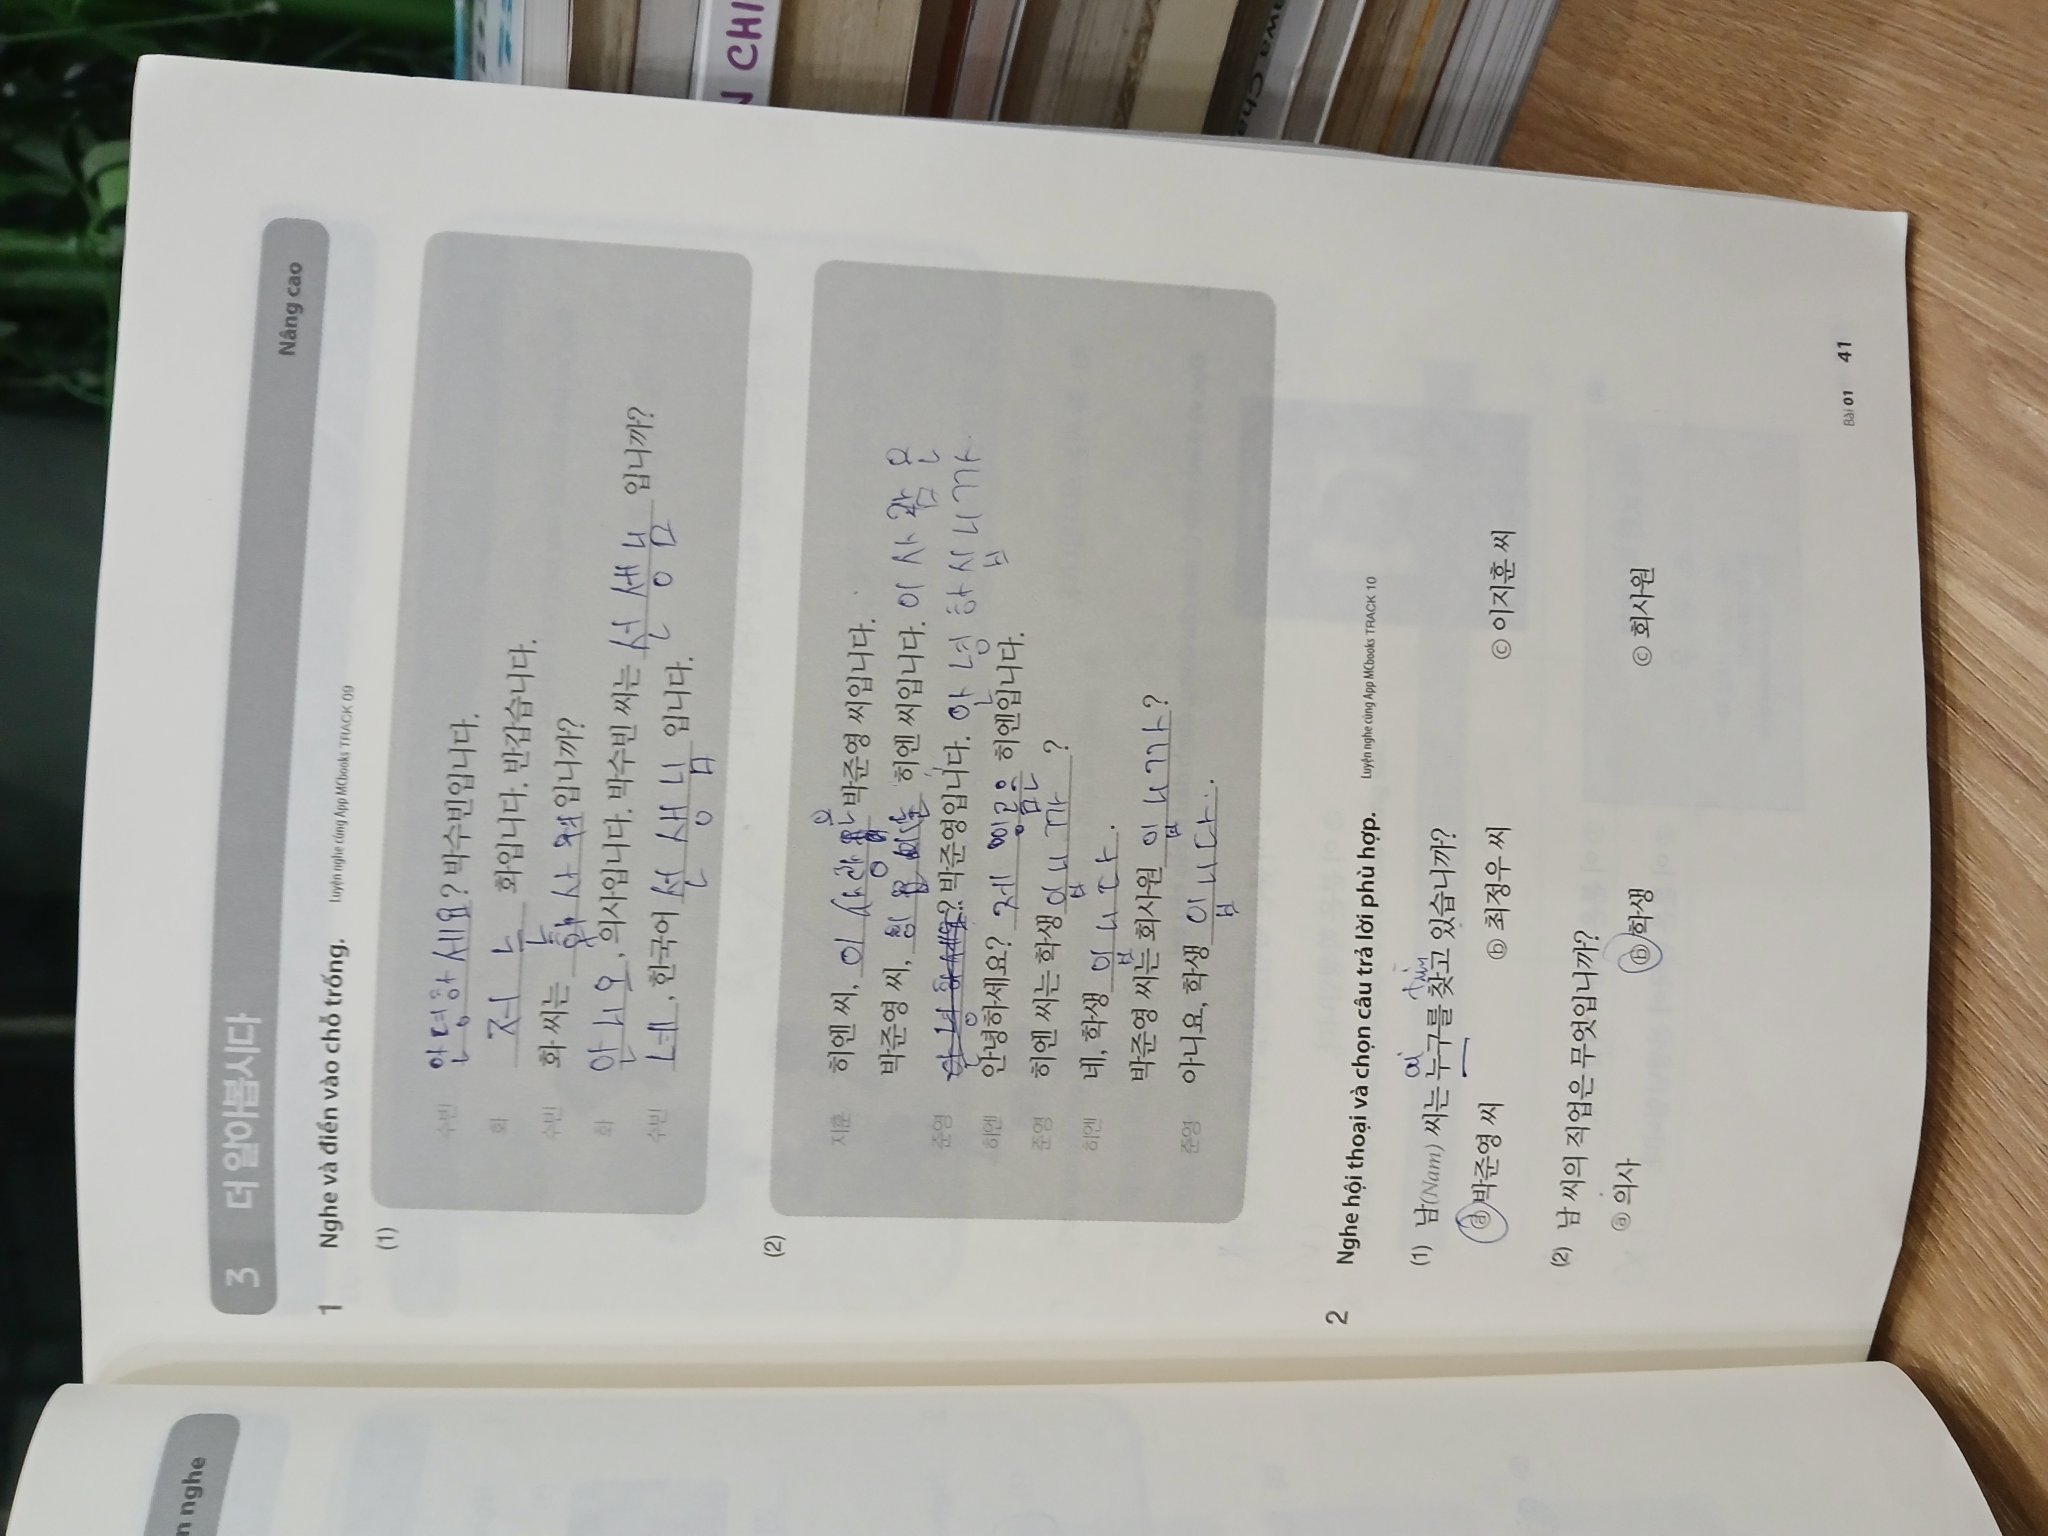 n nghe
N CHI
3 더 알아봅시다 Nâng cao
1 Nghe và điền vào chỗ trống. Luyện nghe cùng App MCbooks TRACK 09
(1)
수빈 안녕하세요? 박수빈입니다.
화 저는 화입니다. 반갑습니다.
수빈 화 씨는 입니까?
화 아니오, 의사입니다. 박수빈 씨는 선생님 입니까?
수빈 네, 한국어 선생님 입니다.
(2)
지훈 히엔 씨, 이 사람은 박준영 씨입니다.
박준영 씨, 히엔 씨입니다. 이 사람은
준영 안녕하세요? 박준영입니다. 안녕하십니까.
히엔 안녕하세요? 제 히엔입니다.
준영 히엔 씨는 학생 입니까?
히엔 네, 학생 입니다.
박준영 씨는 회사원 입니까?
준영 아니요, 학생 입니다.
2 Nghe hội thoại và chọn câu trả lời phù hợp. Luyện nghe cùng App MCbooks TRACK 10
ai tìm
(1) 남(Nam) 씨는 누구를 찾고 있습니까?
ⓐ 박준영 씨 ⓑ 최정우 씨 ⓒ 이지훈 씨
(2) 남 씨의 직업은 무엇입니까?
ⓐ 의사 ⓑ 학생 ⓒ 회사원
Bài 01 41